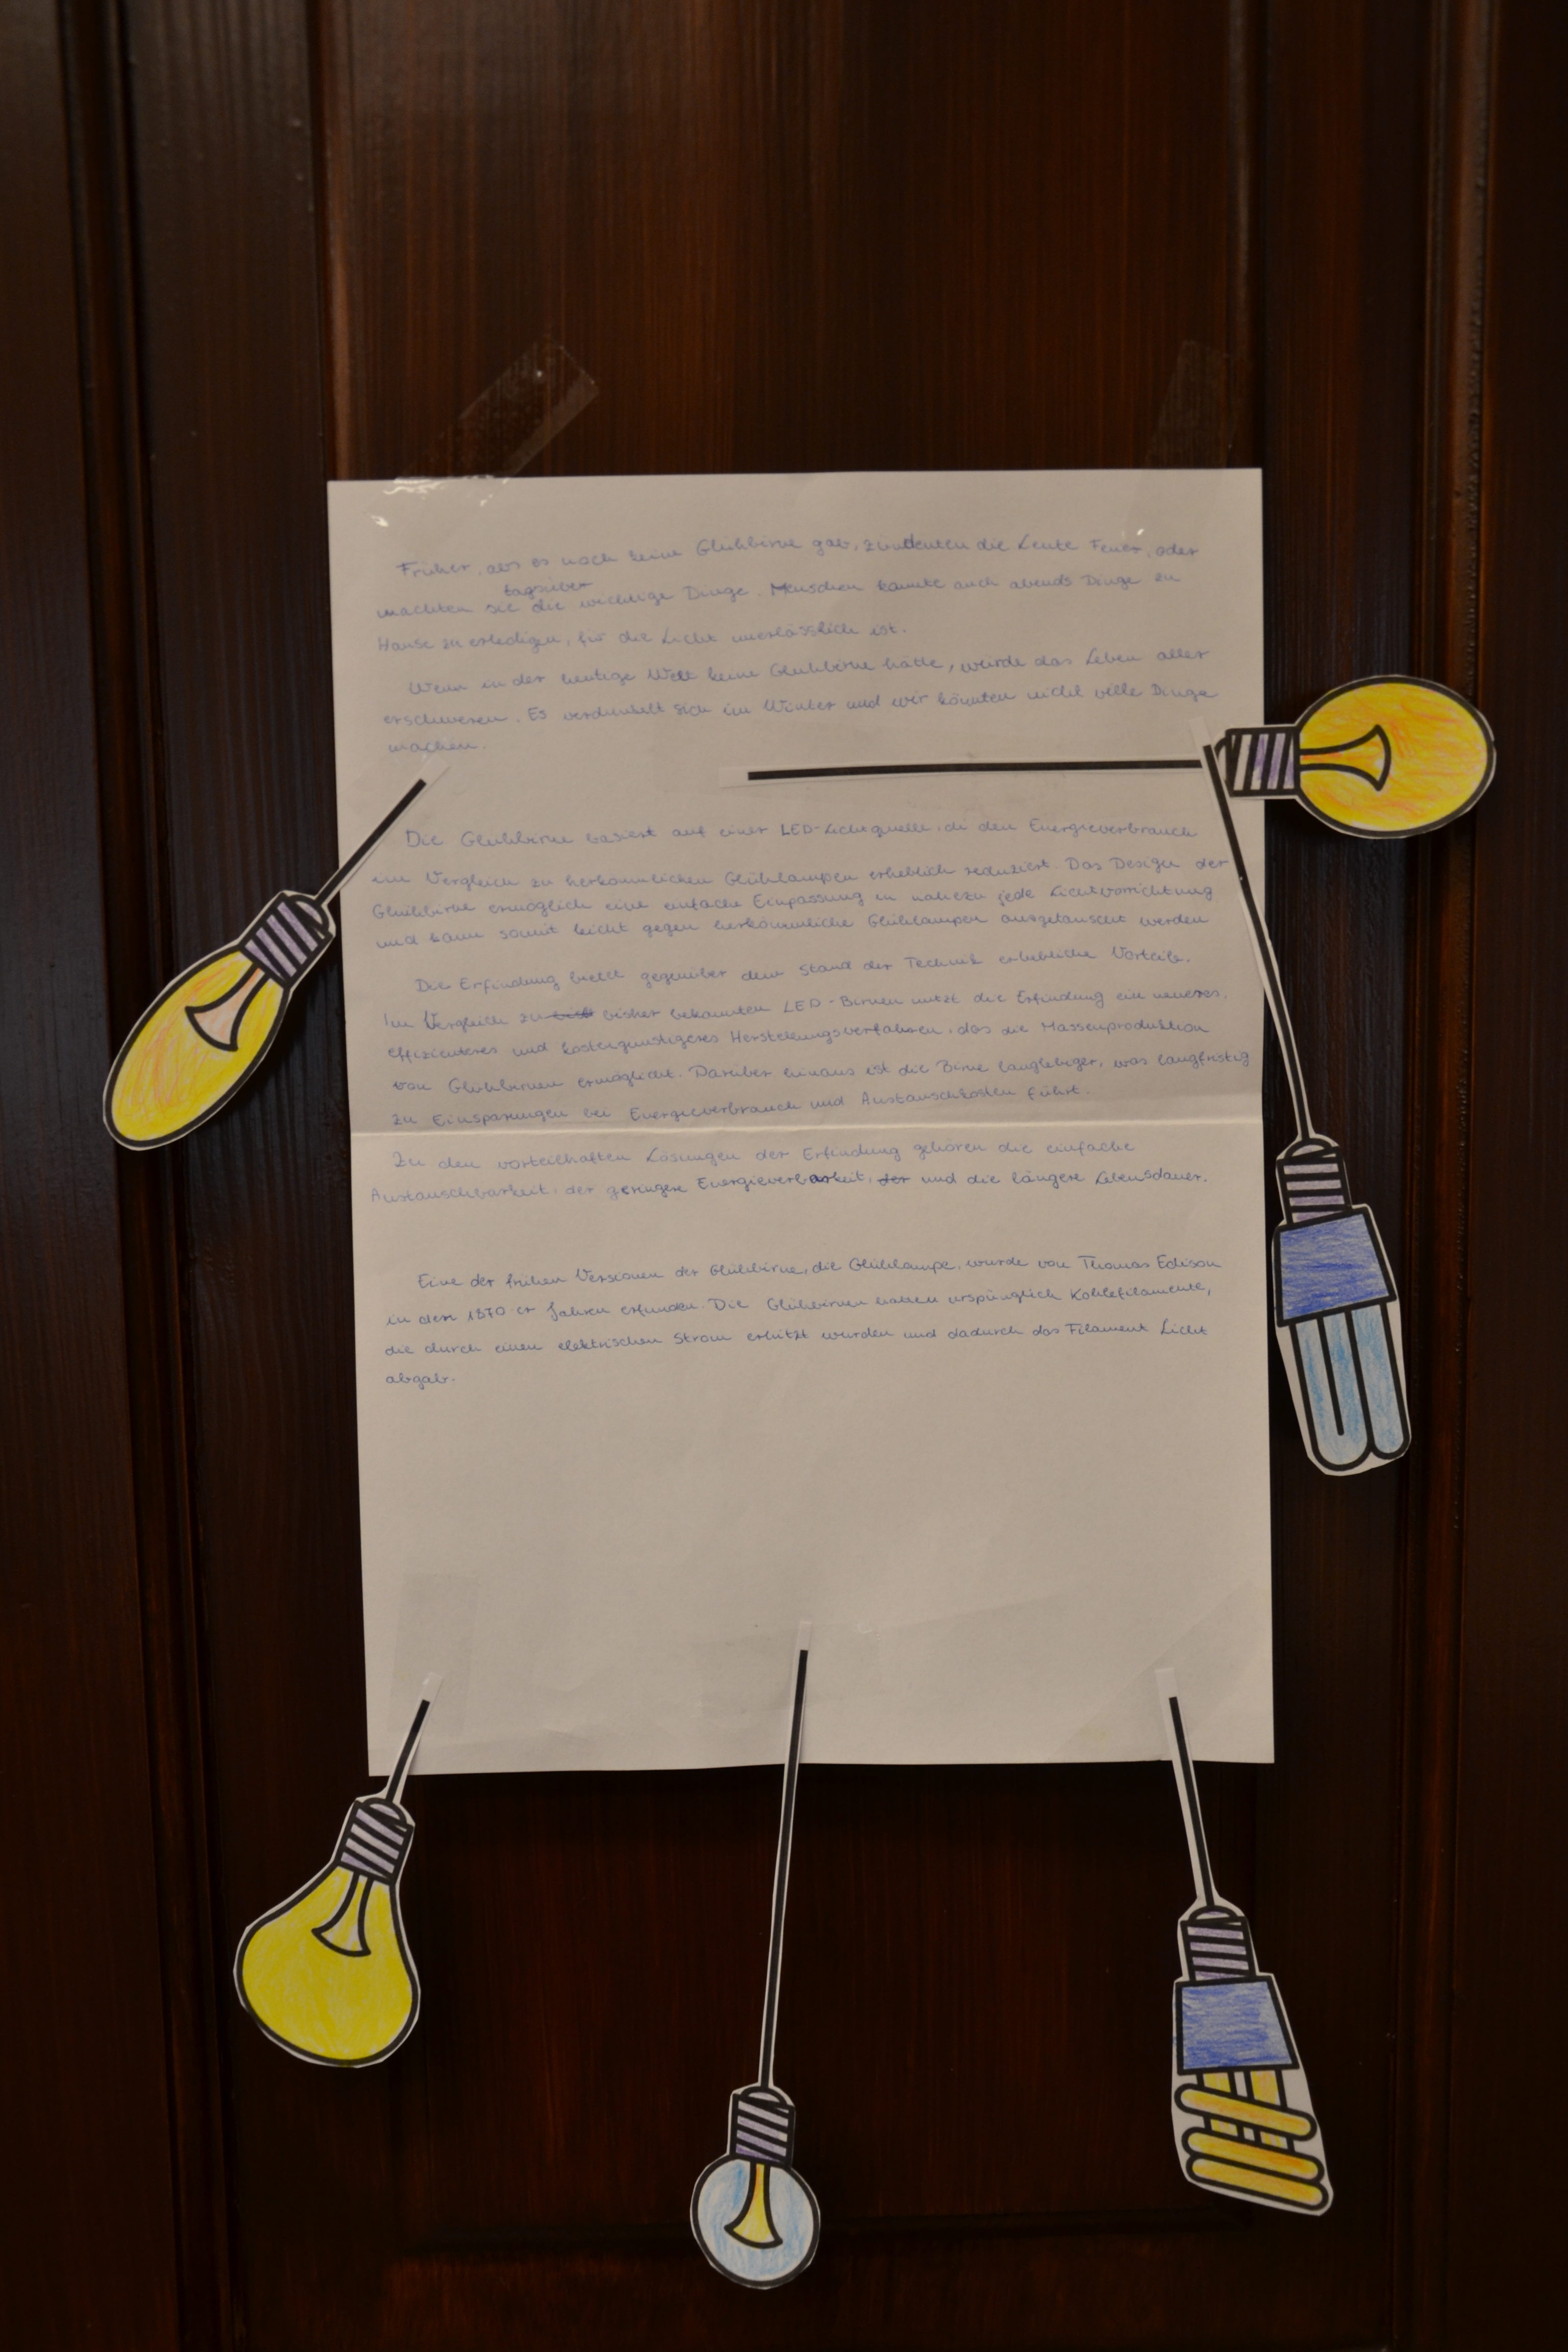 Früher, als es noch keine Glühbirne gab, zündenten die Leute Feuer, oder
tagsüber
machten sie die wichtige Dinge. Menschen konnte auch abends Dinge zu
Hause zu erledigen, für die Licht unerlässlich ist.
Wenn in der heutige Welt keine Glühbirne hätte, würde das Leben aller
erschweren. Es verdunkelt sich im Winter und wir könnten nicht ville Dinge
machen.
Die Glühbirne basiert auf einer LED-Lichtquelle, di den Energieverbrauch
im Vergleich zu herkömmlichen Glühlampen erheblich reduziert. Das Design der
Glühbirne ermöglich eine einfache Einpassung in nahezu jede Lichtvorrichtung
und kann somit leicht gegen herkömmliche Glühlampen ausgetauscht werden
Die Erfindung bietet gegenüber dem Stand der Technik erhebliche Vorteile.
Im Vergleich zu bisher bekannten LED-Birnen nutzt die Erfindung ein neueres,
effizienteres und kostengünstigeres Herstellungsverfahren, das die Massenproduktion
von Glühbirnen ermöglicht. Darüber hinaus ist die Birne langlebiger, was langfristig
zu Einsparungen bei Energieverbrauch und Austauschkosten führt.
Zu den vorteilhaften Lösungen der Erfindung gehören die einfache
Austauschbarkeit, der geringere Energieverbarkeit, der und die längere Lebensdauer.
Eine der frühen Versionen der Glühbirne, die Glühlampe, wurde von Thomas Edison
in den 1870-er Jahren erfunden. Die Glühbirnen hatten urspünglich Kohlefilamente,
die durch einen elektrischen Strom erhitzt wurden und dadurch das Filament Licht
abgab.